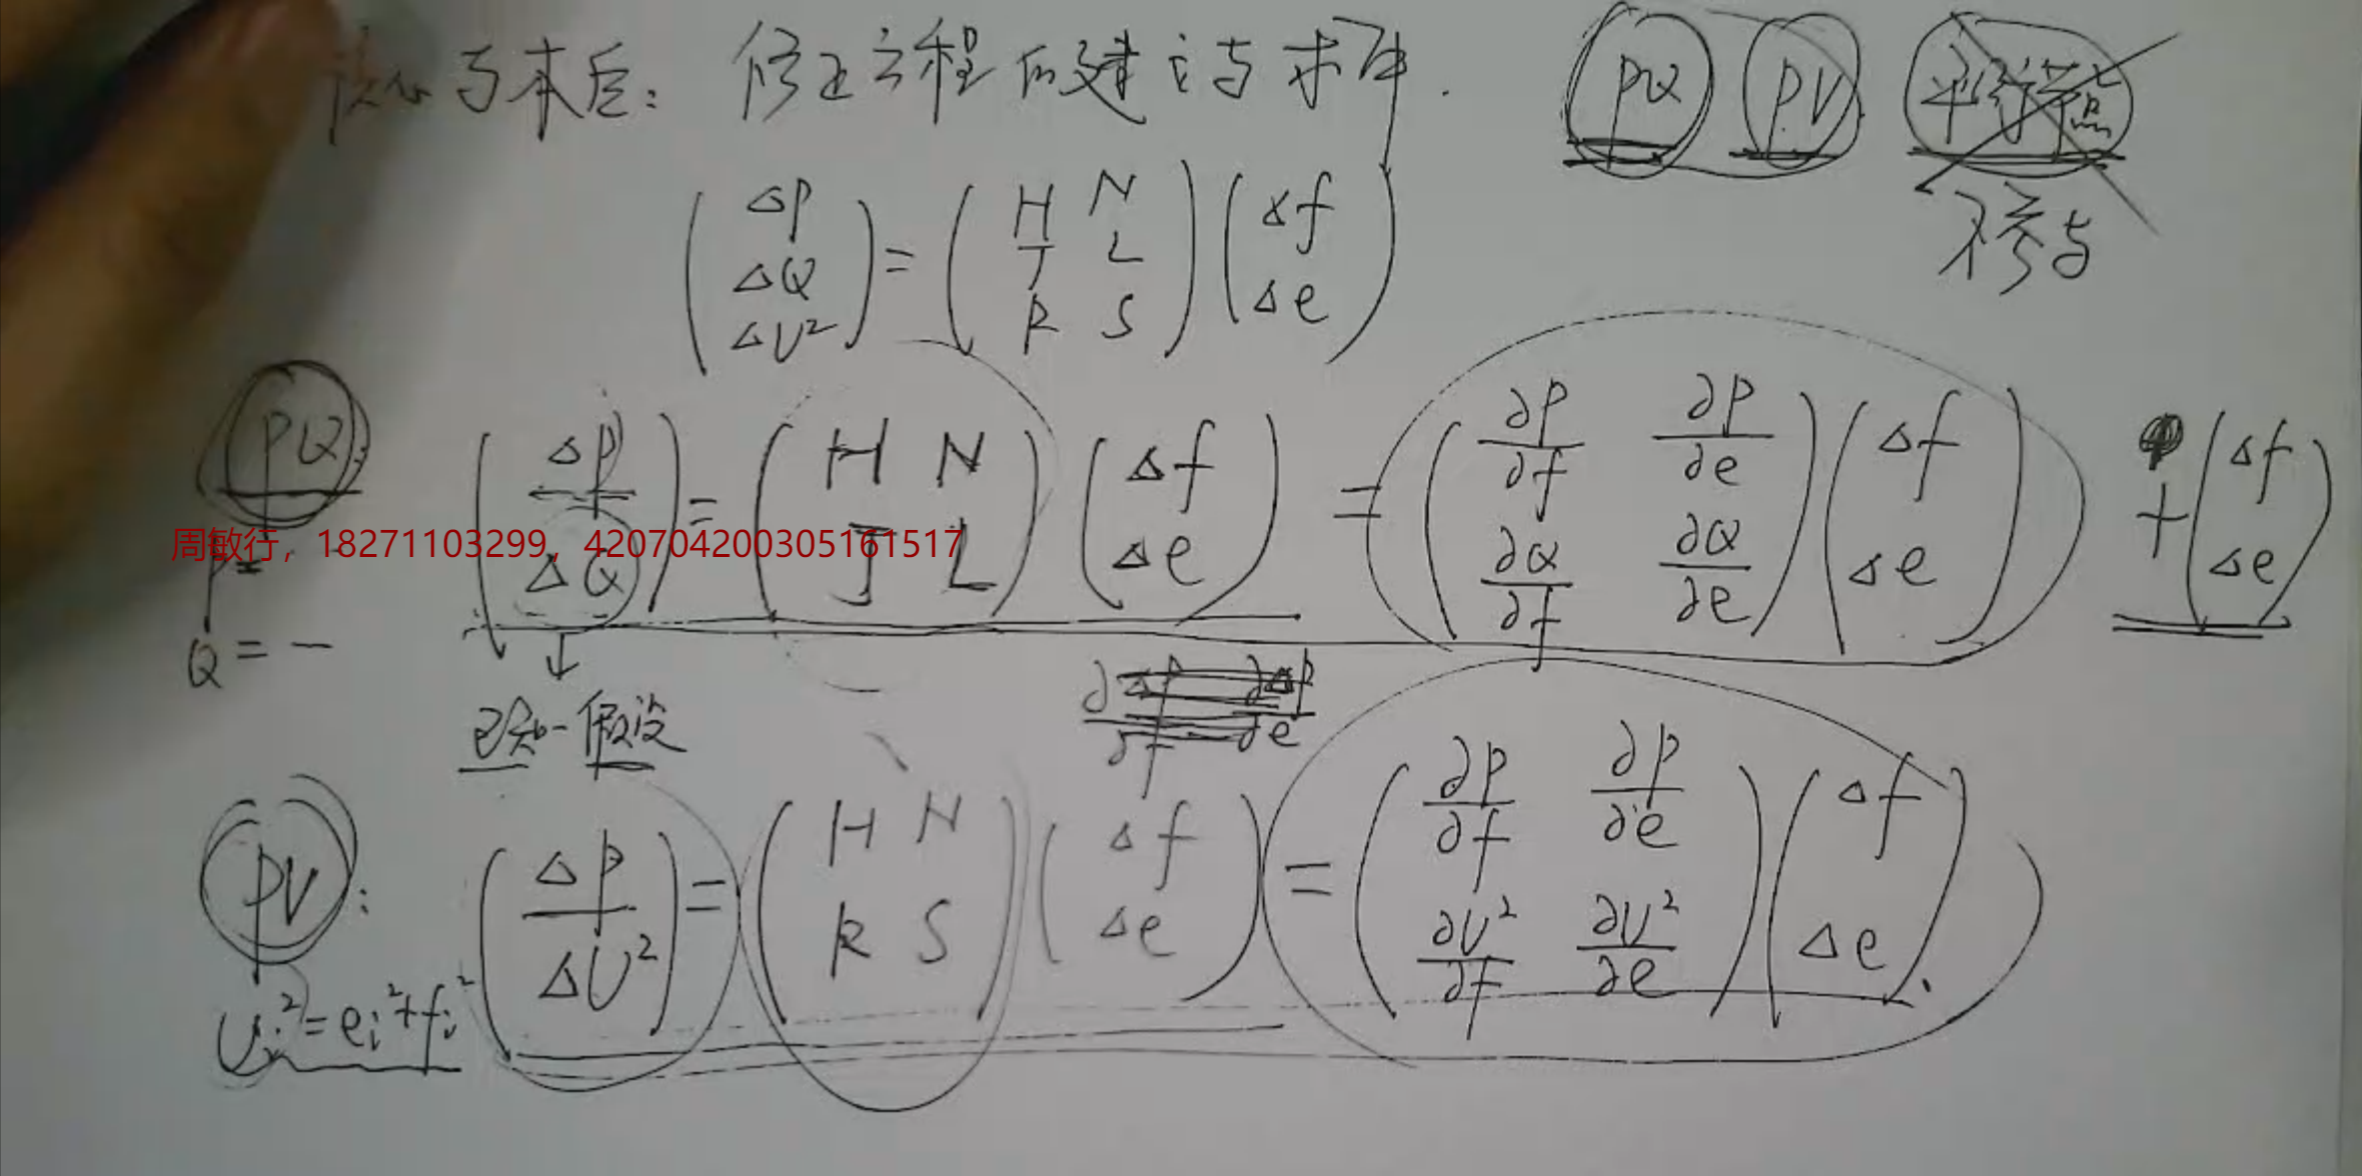 核心与本质：修正方程的建立与求解.
PQ PV 平衡节点
不参与
(ΔP ΔQ ΔU²) = (H N J L R S) (Δf Δe)
PQ: (ΔP ΔQ) = (H N J L) (Δf Δe) = (∂P/∂f ∂P/∂e ∂Q/∂f ∂Q/∂e) (Δf Δe) + (Δf Δe)
周敏行，18271103299，420704200305161517
P =
Q = -
已知-假设
∂ΔP/∂f ∂ΔP/∂e
PV: (ΔP ΔU²) = (H N R S) (Δf Δe) = (∂P/∂f ∂P/∂e ∂U²/∂f ∂U²/∂e) (Δf Δe).
Ui² = ei² + fi²